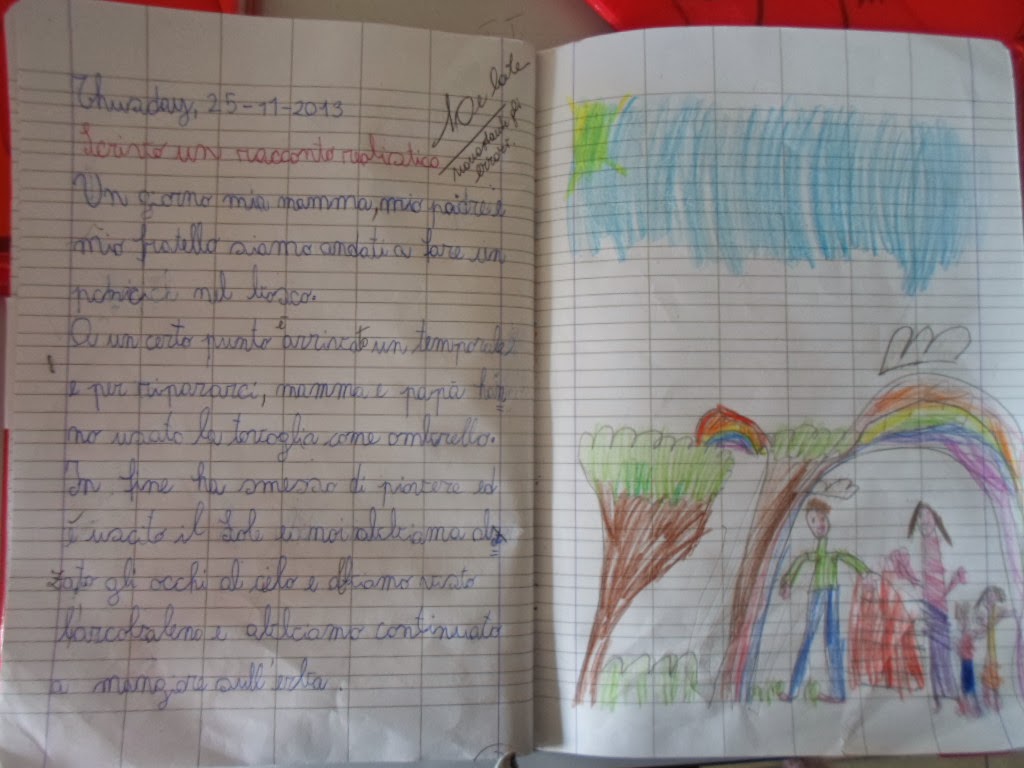 Thursday, 25-11-2013
10 e lode
Scrivo un racconto realistico
nonostante gli
errori.
Un giorno mia mamma, mio padre e
mio fratello siamo andati a fare un
nel bosco.
A un certo punto è arrivato un temporale
e per ripararci, mamma e papà han
no usato la tovaglia come ombrello.
In fine ha smesso di piovere ed
è uscito il Sole e noi abbiamo al
zato gli occhi al cielo e abbiamo visto
l'arcobaleno e abbiamo continuato
a mangiare sull'erba.